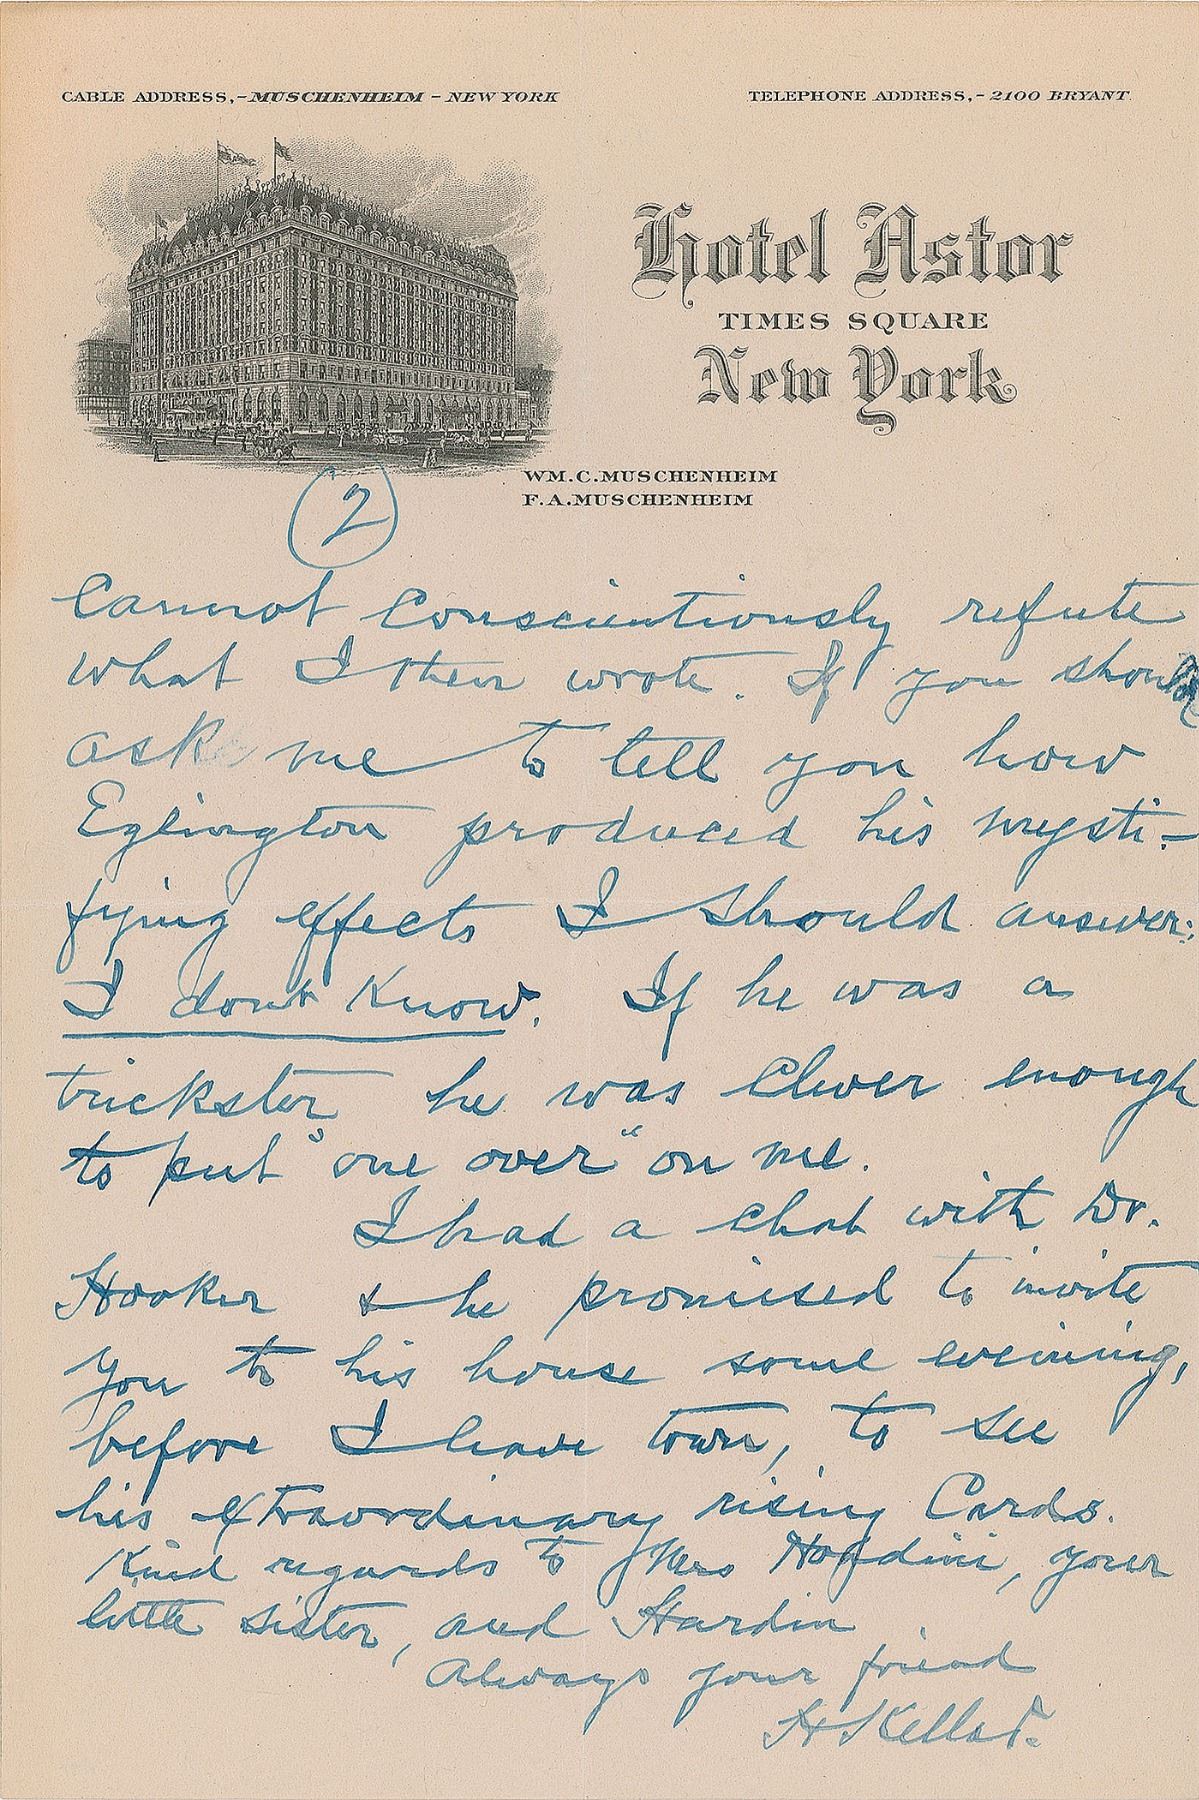 CABLE ADDRESS,- MUSCHENHEIM - NEW YORK
TELEPHONE ADDRESS,- 2100 BRYANT.
Hotel Astor
TIMES SQUARE
New York
WM. C. MUSCHENHEIM
F. A. MUSCHENHEIM
2
Cannot Conscientiously refute
what I then wrote. If you should
ask me to tell you how
Eglington produced his mysti-
fying effects I should answer:
I dont Know. If he was a
trickster he was Clever enough
to put "one over" on me.
I had a chat with Dr.
Hooker & he promised to invite
you to his house some evening,
before I leave town, to see
his extraordinary rising Cards.
Kind regards to Mrs Houdini, your
little sister, and Hardin
always your friend
H Kellar.